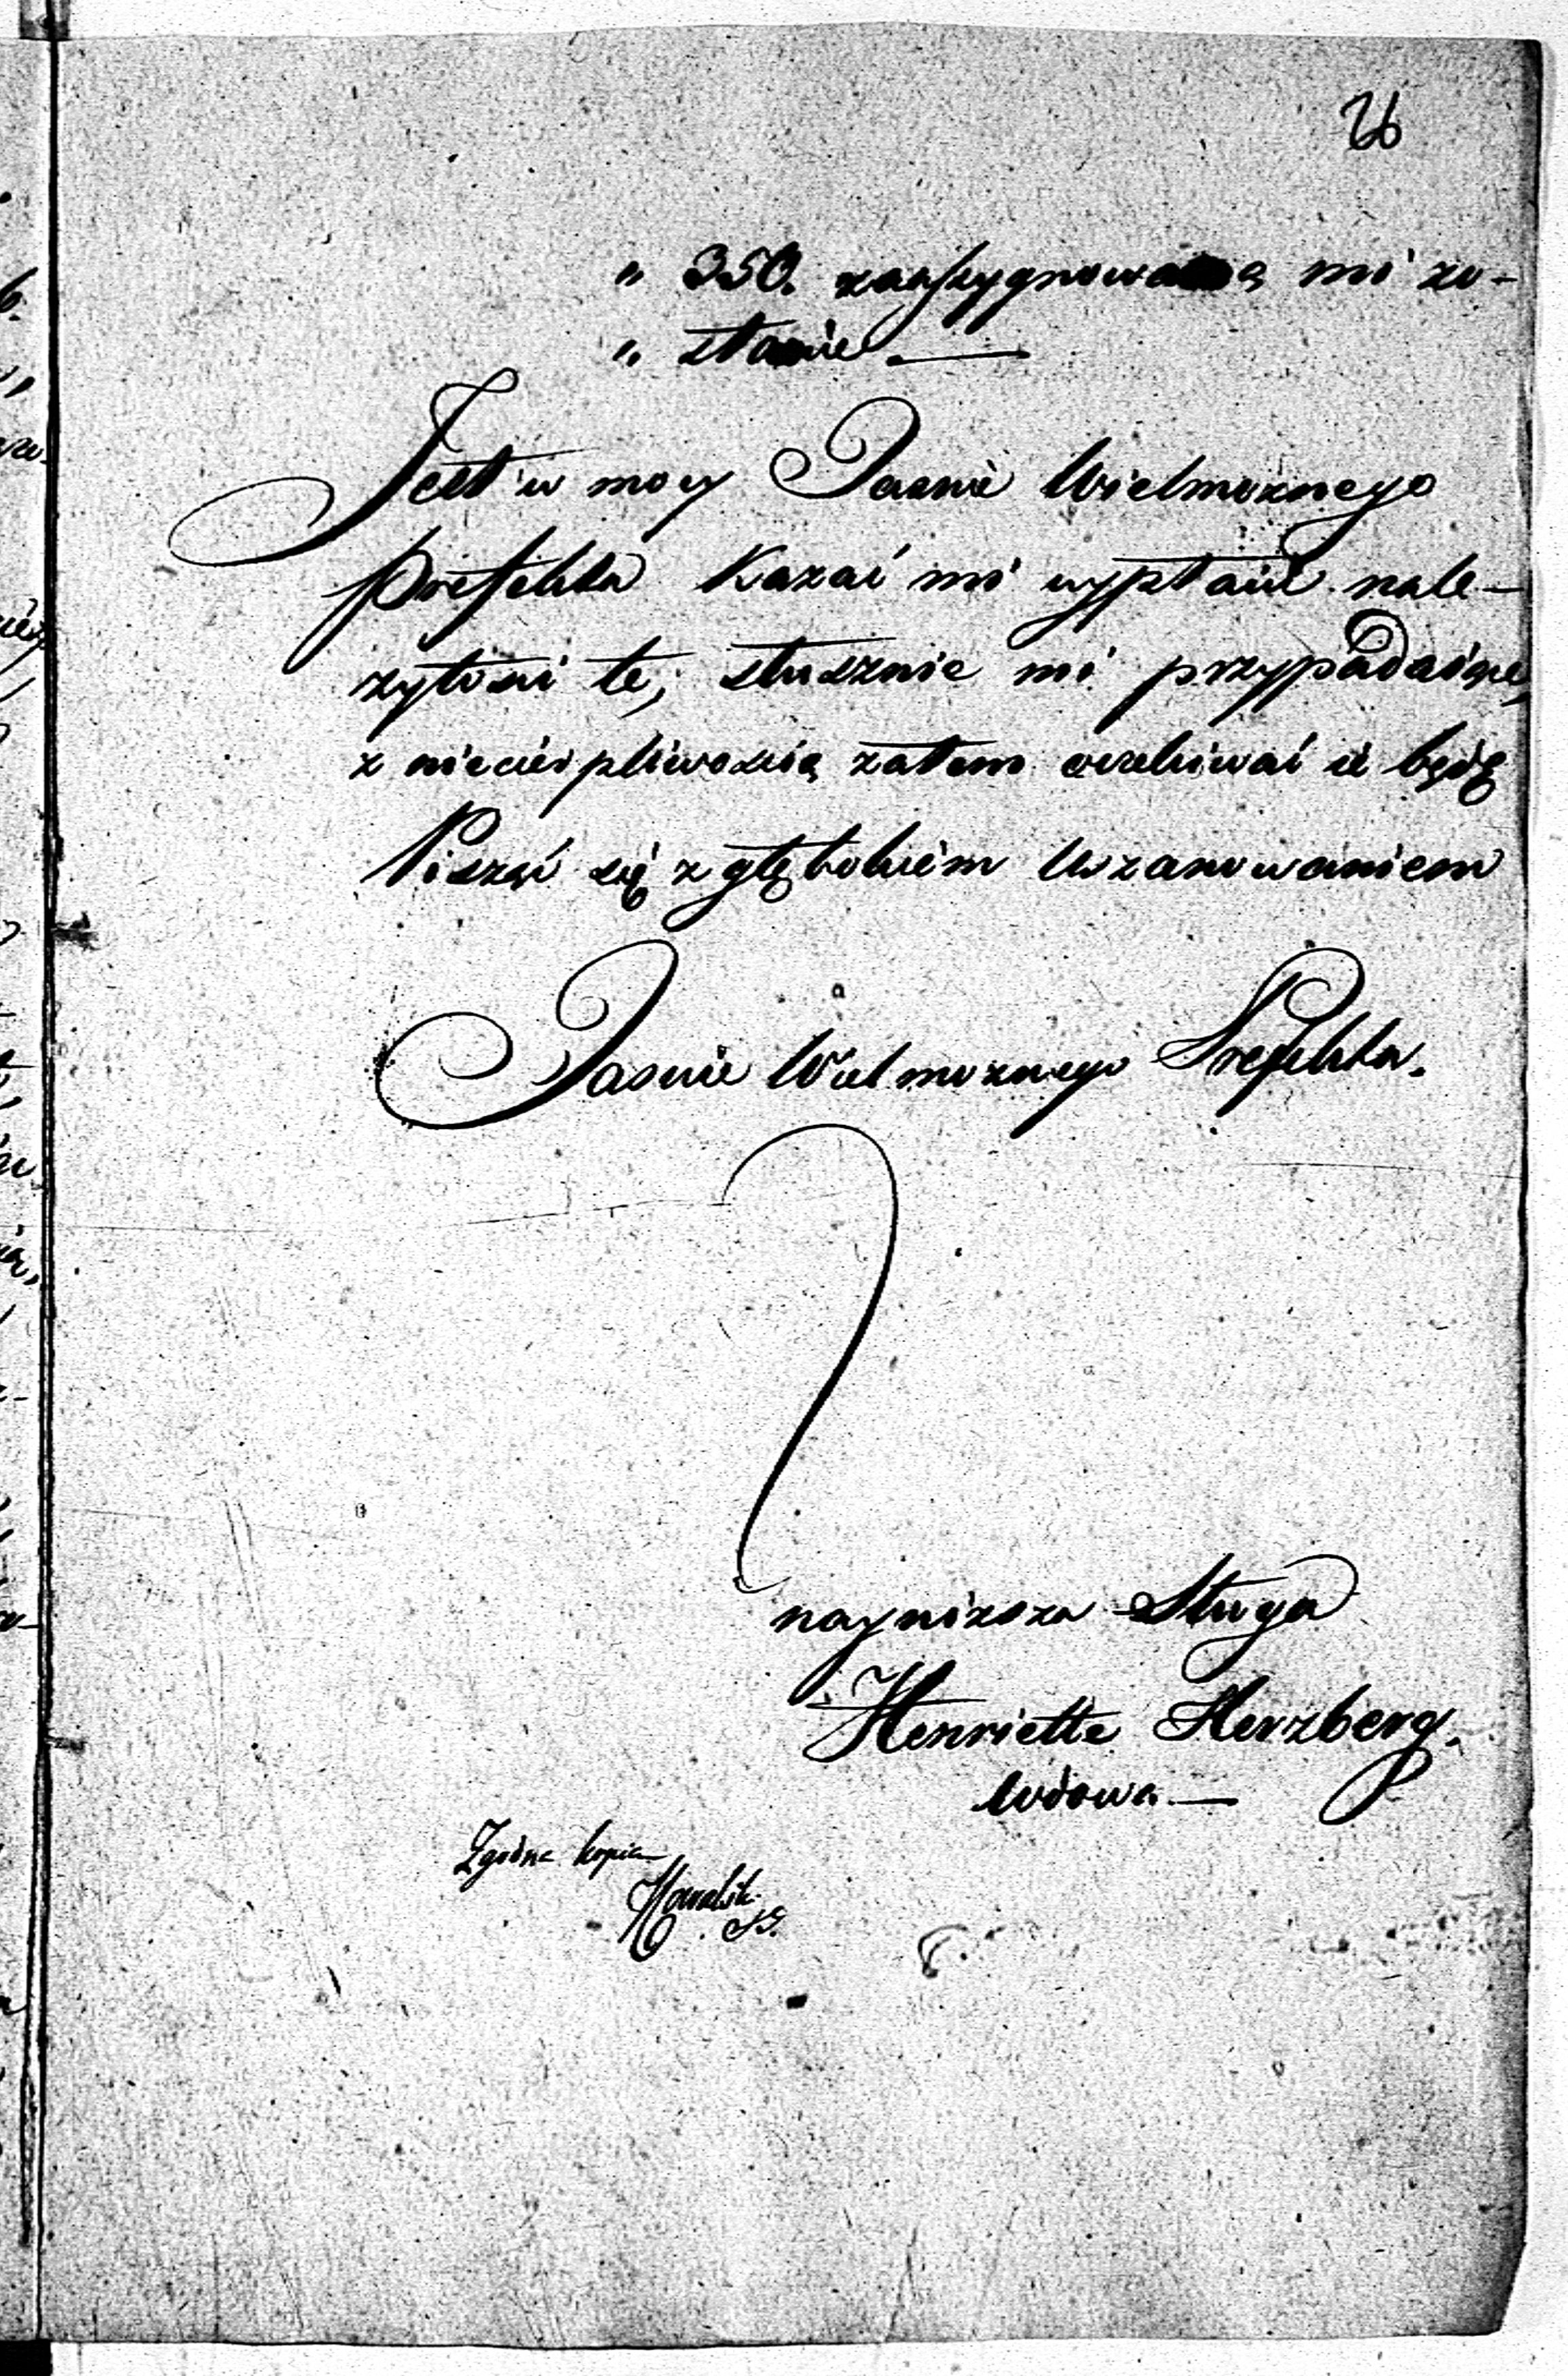 26
" 350. zaassygnowaną mi zo-
" stanie —
Jest w mocy Jasnie Wielmoznego
Prefekta Kazać mi wypłacić nale-
zytosci te, słusznie mi przypadaiące,
z niecierpliwoscią zatem oczekiwać ié będę
Pisząć się z głębokiém Uszanowaniem
Jasnie Wielmoznego Prefekta.
naynizsza Sługa
Henriette Herzberg.
Wdowa —
Zgodna kopia